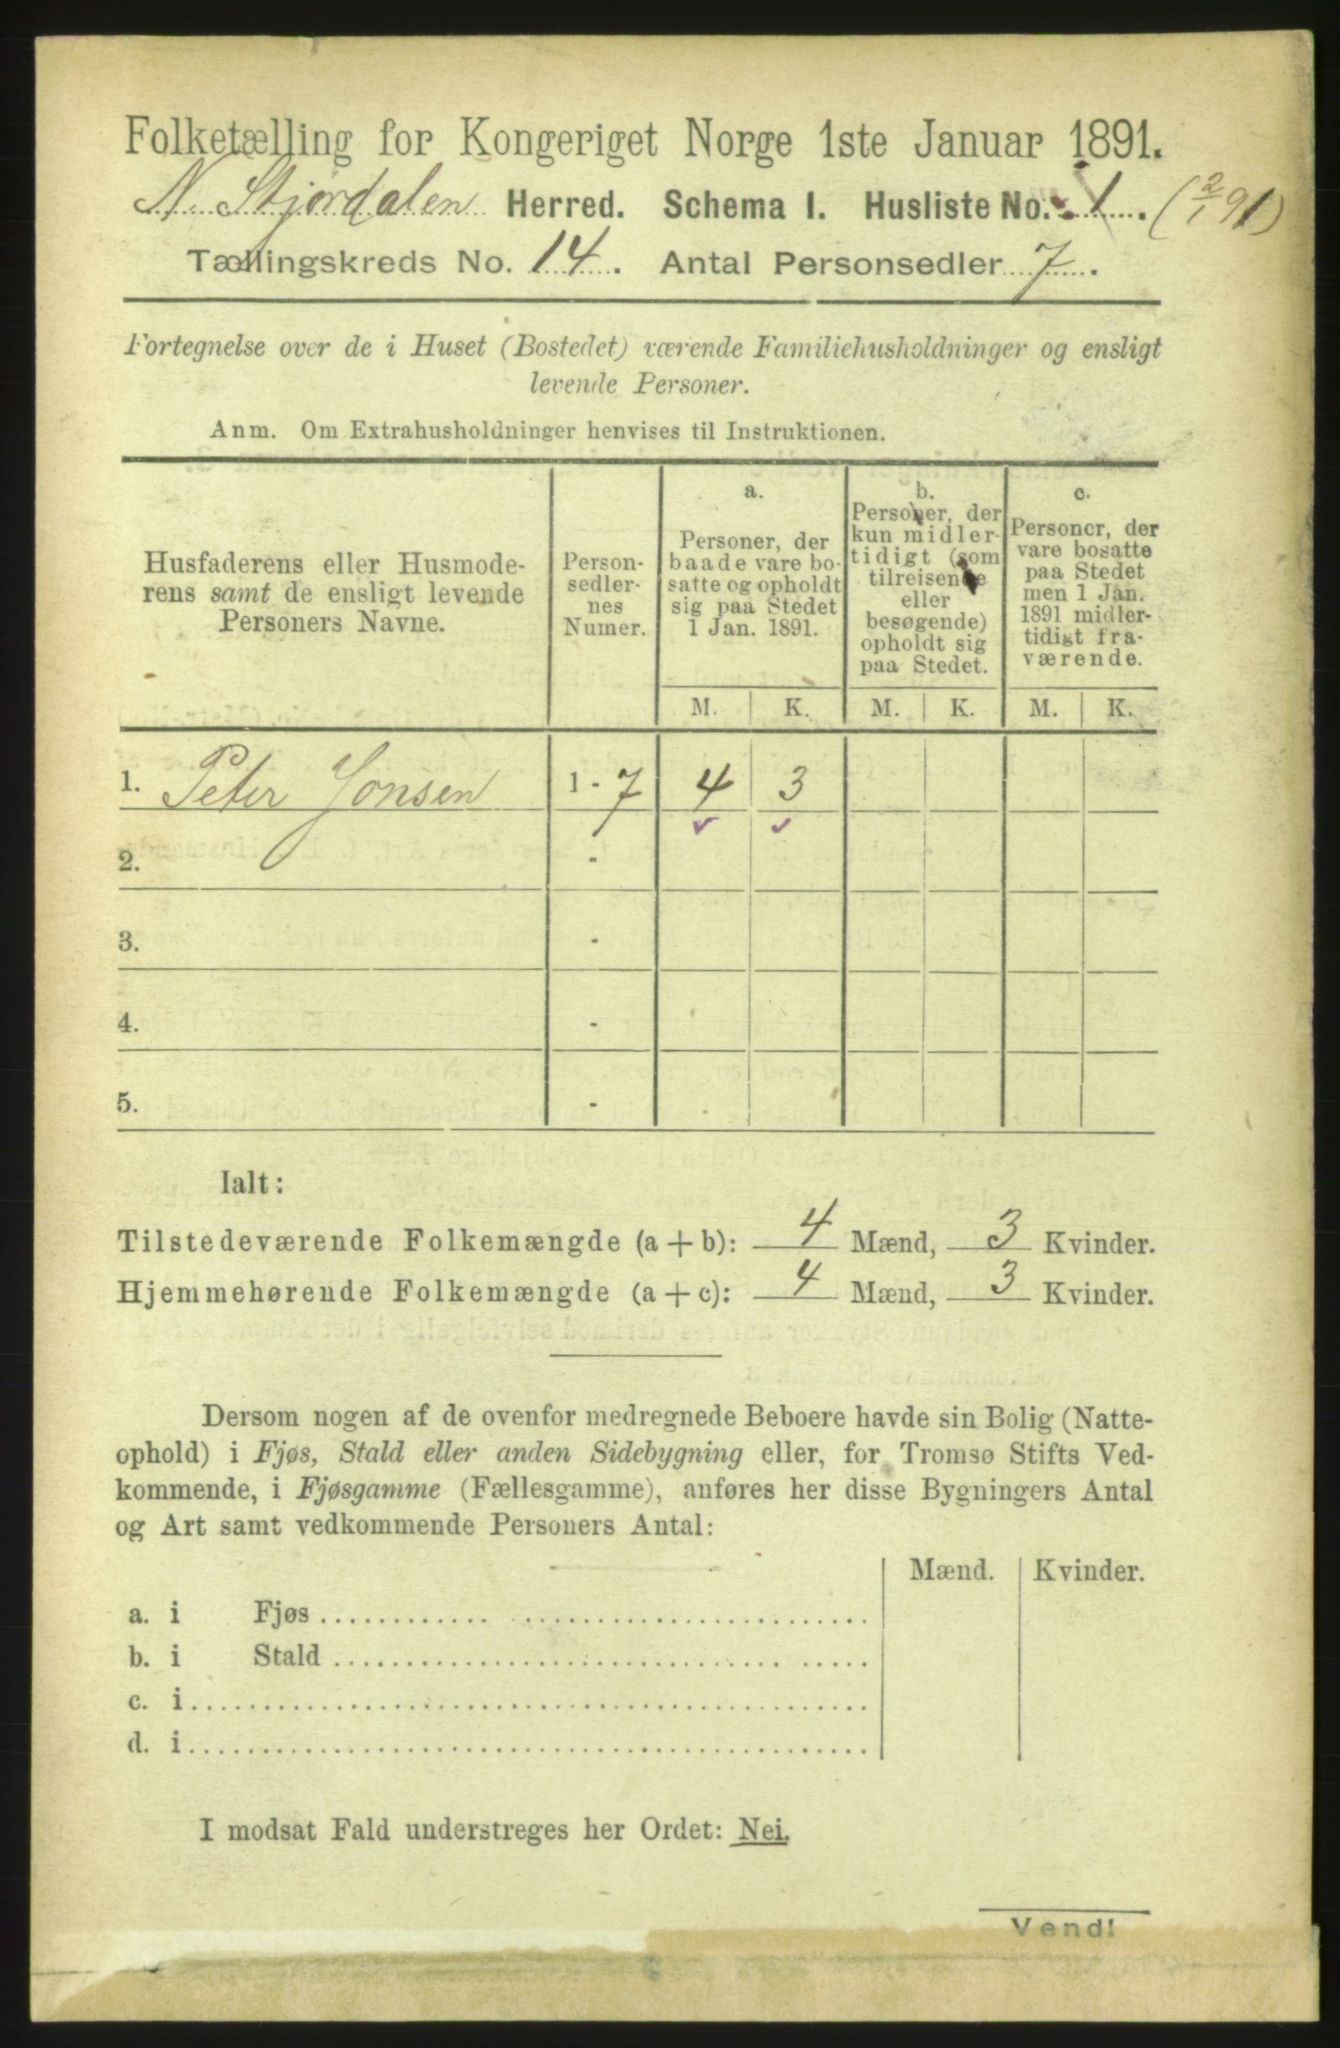 Folketælling for Kongeriget Norge 1ste Januar 1891.
N. Stjørdalen Herred. Schema I. Husliste No. 1. (2/1 91)
Tællingskreds No. 14. Antal Personsedler 7.
Fortegnelse over de i Huset (Bostedet) værende Familiehusholdninger og ensligt
levende Personer.
Anm. Om Extrahusholdninger henvises til Instruktionen.
Husfaderens eller Husmode-
rens samt de ensligt levende
Personers Navne.
Person-
sedler-
nes
Numer.
a.
Personer, der
baade vare bo-
satte og opholdt
sig paa Stedet
1 Jan. 1891.
b.
Personer, der
kun midler-
tidigt (som
tilreisende
eller
besøgende)
opholdt sig
paa Stedet.
c.
Personer, der
vare bosatte
paa Stedet
men 1 Jan.
1891 midler-
tidigt fra-
værende.
M. K. M. K. M. K.
1. Peter Jonsen 1 - 7 4 3
2. -
3. -
4. -
5. -
Ialt:
Tilstedeværende Folkemængde (a + b): 4 Mænd, 3 Kvinder.
Hjemmehørende Folkemængde (a + c): 4 Mænd, 3 Kvinder.
Dersom nogen af de ovenfor medregnede Beboere havde sin Bolig (Natte-
ophold) i Fjøs, Stald eller anden Sidebygning eller, for Tromsø Stifts Ved-
kommende, i Fjøsgamme (Fællesgamme), anføres her disse Bygningers Antal
og Art samt vedkommende Personers Antal:
Mænd. Kvinder.
a. i Fjøs
b. i Stald
c. i
d. i
I modsat Fald understreges her Ordet: Nei.
Vend!